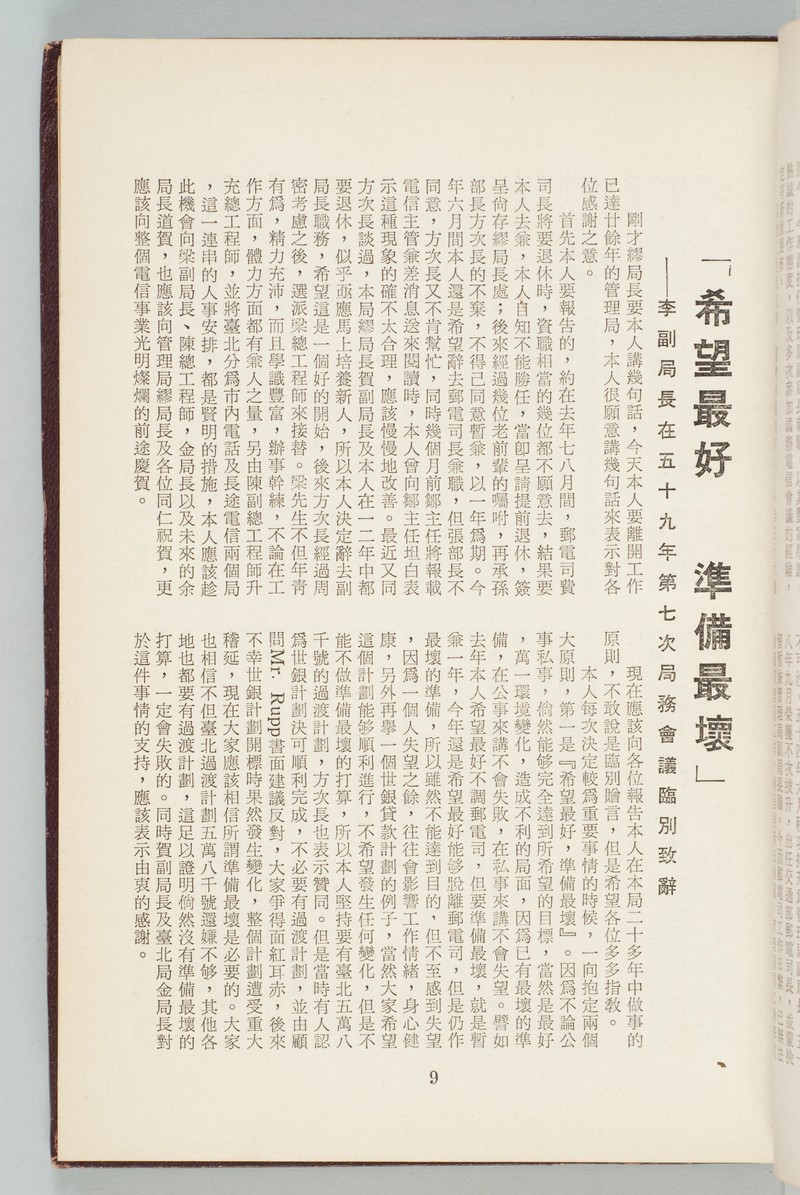 「希望最好　準備最壞」
——李副局長在五十九年第七次局務會議臨別致辭
剛才繆局長要本人講幾句話，今天本人要離開工作
已達廿餘年的管理局，本人很願意講幾句話來表示對各
位感謝之意。
首先本人要報告的，約在去年七八月間，郵電司費
司長將要退休時，資職相當的幾位都不願意去，結果要
本人去兼，本人自知不能勝任，當卽呈請提前退休，簽
呈尙存繆局長處；後來經過幾位老前輩的囑咐，再承孫
部長方次長的不棄，不得己同意暫兼，以一年爲期。今
年六月間本人還是希望辭去郵電司長兼職，但張部長不
同意，方次長又不肯幫忙，同時幾個月前鄒主任將報載
電信主管兼差消息送來閱讀時，本人曾向鄒主任坦白表
示這種現象的確不太合理，應該慢慢地改善。最近又同
方次長談過，本局繆局長賀副局長及本人在一二年中都
要退休，似乎亟應馬上培養新人，所以本人決定辭去副
局長職務，希望這是一個好的開始，後來方次長經過周
密考慮之後，選派梁總工程師來接替。梁先生不但年靑
有爲，精力充沛，而且學識豐富，辦事幹練，不論在工
作方面，體力方面都有兼人之量，另由陳副總工程師升
充總工程師，並將臺北分爲市內電話及長途電信兩個局
，這一連串的人事安排，都是賢明的措施，本人應該趁
此機會向梁副局長、陳總工程師，金局長以及未來的余
局長道賀，也應該向管理局繆局長及各位同仁祝賀，更
應該向整個電信事業光明燦爛的前途慶賀。
現在應該向各位報告本人在本局二十多年中做事的
原則，不敢說是臨別贈言，但是希望各位多多指敎。
本人每次決定較爲重要事情的時候，一向抱定兩個
大原則，第一是『希望最好，準備最壞』。因爲不論公
事私事，倘然能够完全達到所希望的目標，當然是最好
，萬一環境變化，造成不利的局面，因爲已有最壞的準
備，在公事來講不會失敗，在私事來講不會失望。譬如
去年本人希望最好不調郵電司，但要準備最壞，就是暫
兼一年，今年還是希望最好能够脫離郵電司，但是仍作
最壞的準備，所以雖然不能達到目的，但不至感到失望
，因爲一個人失望之餘，往往會影響工作情緒，身心健
康，另外再擧一個世銀貸款計劃的例子，當然大家希望
這個計劃能够順利進行，不希望發生任何變化，但是不
能不做準備最壞的打算，所以本人堅持要有臺北五萬八
千號的過渡計劃，方次長也表示贊同。但是當時有人認
爲世銀計劃決可順利完成，不必要有過渡計劃，並由顧
問Mr. Rupp書面建議反對，大家爭得面紅耳赤，後來
不幸世銀計劃開標時果然發生變化，整個計劃遭受重大
稽延，現在大家應該相信所謂準備最壞是必要的。大家
也相信不但臺北過渡計劃五萬八千號還嫌不够，其他各
地也都要有過渡計劃，這足以證明倘然沒有準備最壞的
打算，一定會失敗的。同時賀副局長及臺北局金局長對
於這件事情的支持，應該表示由衷的感謝。
9